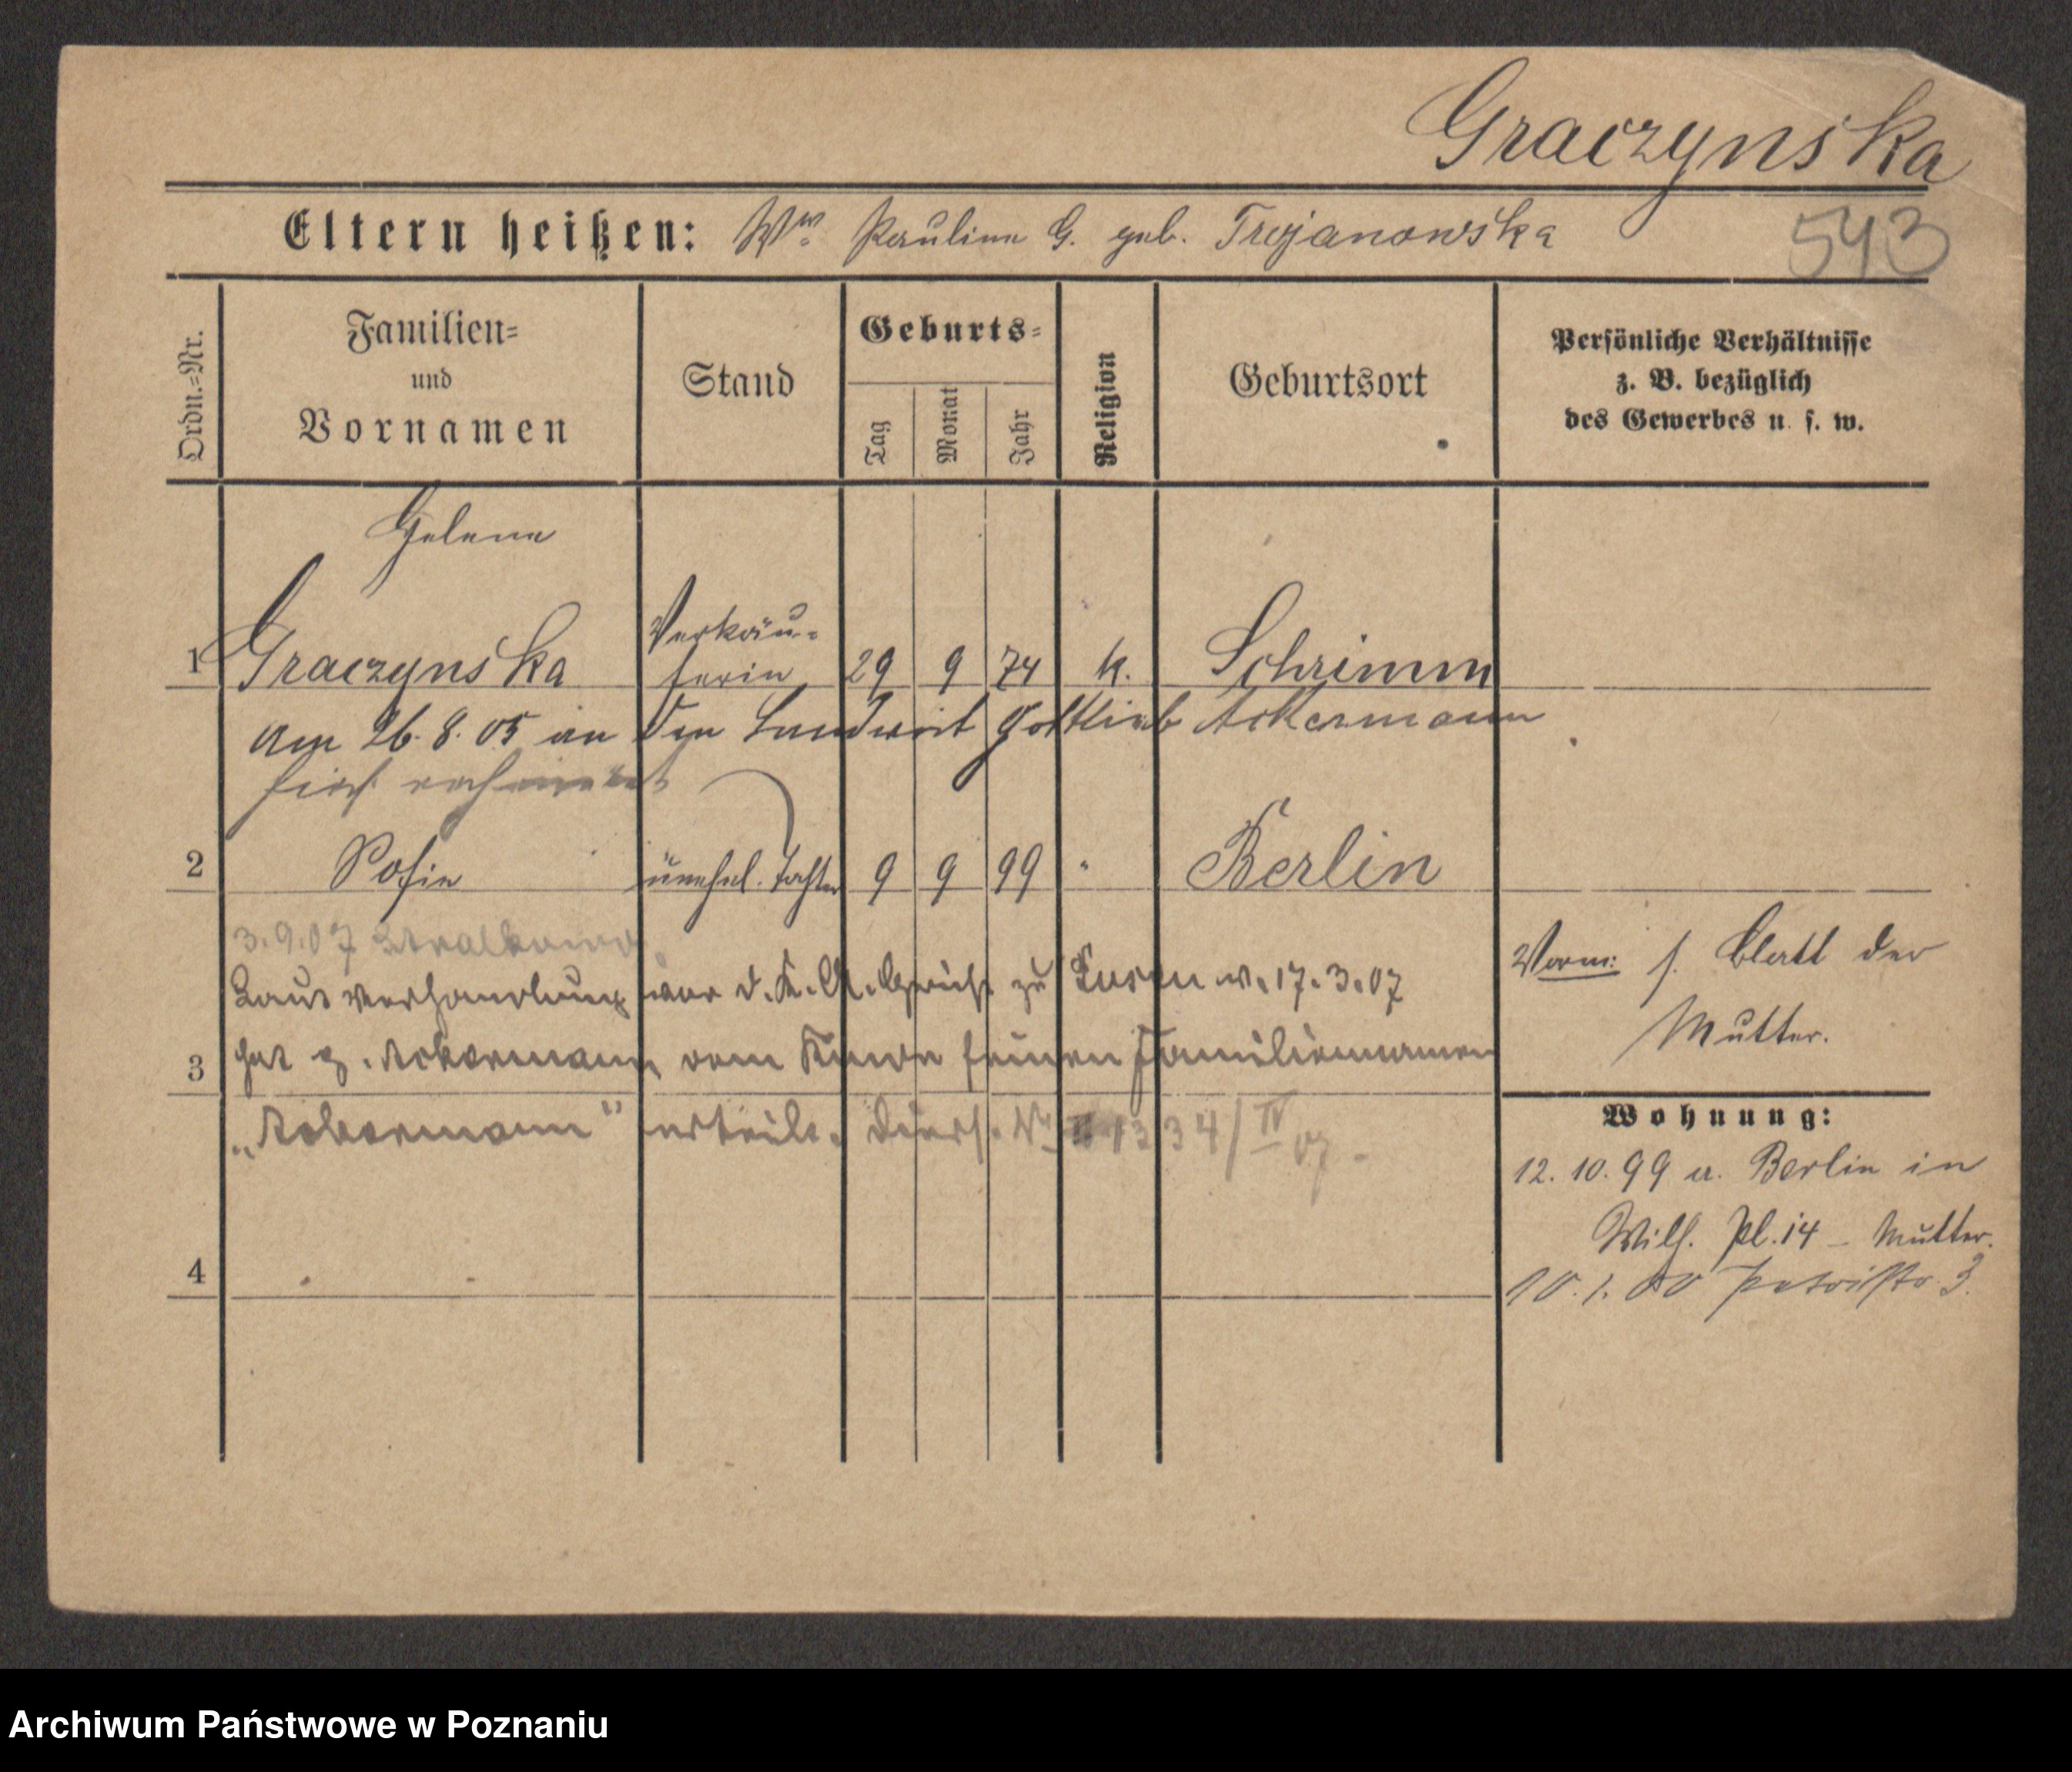 Graczynska
Eltern heißen: Ww. Pauline G. geb. Trojanowska
543
Ordn.=Nr.
Familien=
und
Vornamen
Stand
Geburts=
Tag
Monat
Jahr
Religion
Geburtsort
Persönliche Verhältnisse
z. B. bezüglich
des Gewerbes u. s. w.
Helene
1 Graczynska Verkäu-
ferin 29 9 74 k. Schrimm
Am 26.8.05 an den Landwirt Gottlieb Ackermann
sich
2 Sofie unehel. Tochter 9 9 99 " Berlin
3.9.07 Stralkowo
Laut Verhandlung vor d. K. A. Gericht zu v. 17.3.07
3 hat g. Ackermann dem Kinde seinen Familiennamen
„Ackermann" erteilt. Diess. No 1334/IV 07.
4
Vorm: s. Blatt der
Mutter.
Wohnung:
12.10.99 a. Berlin in
Wilh. Pl. 14 – Mutter.
10.1.00 Petristr 3.